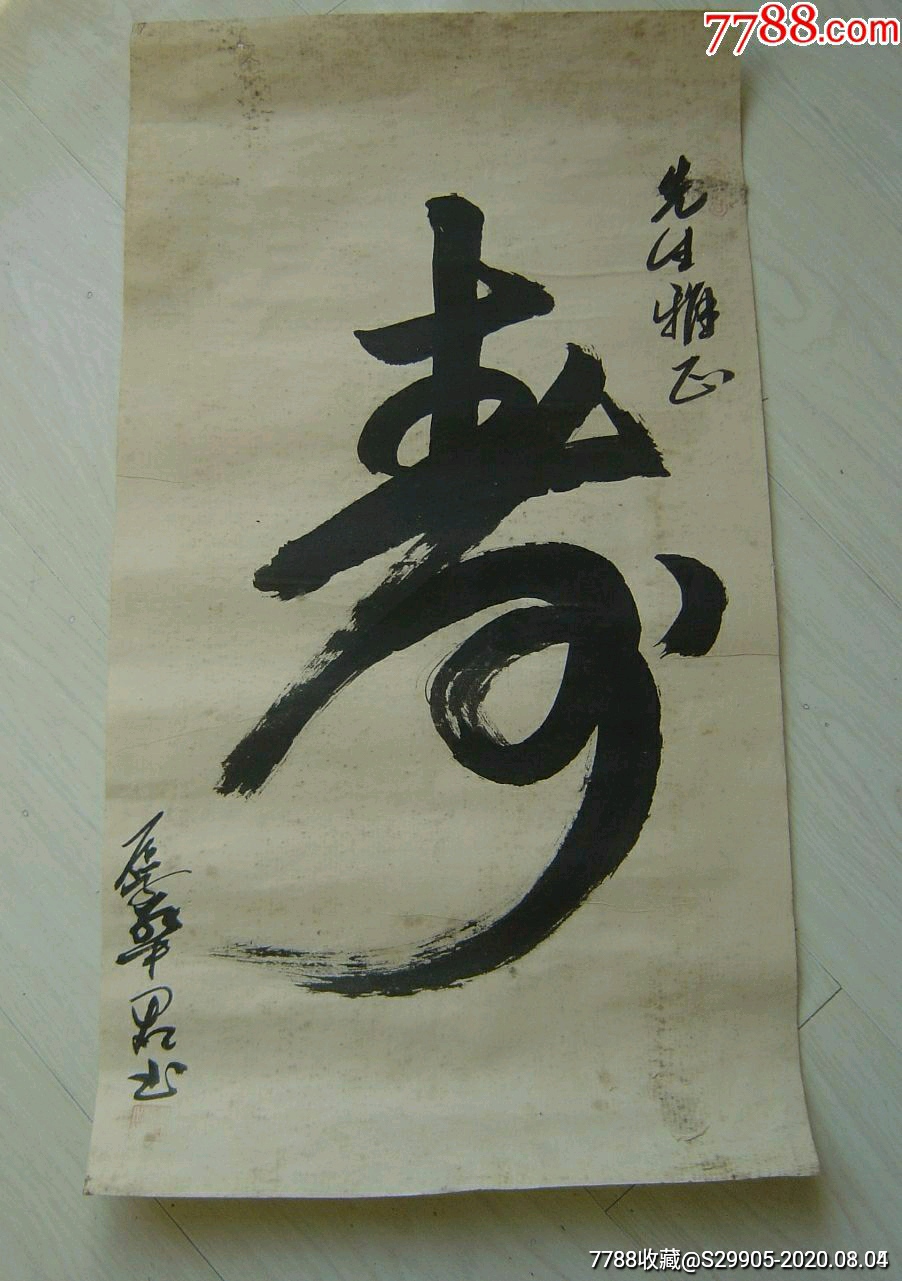 7788.com
先生雅正
寿
书
7788收藏@S29905-2020.08.04